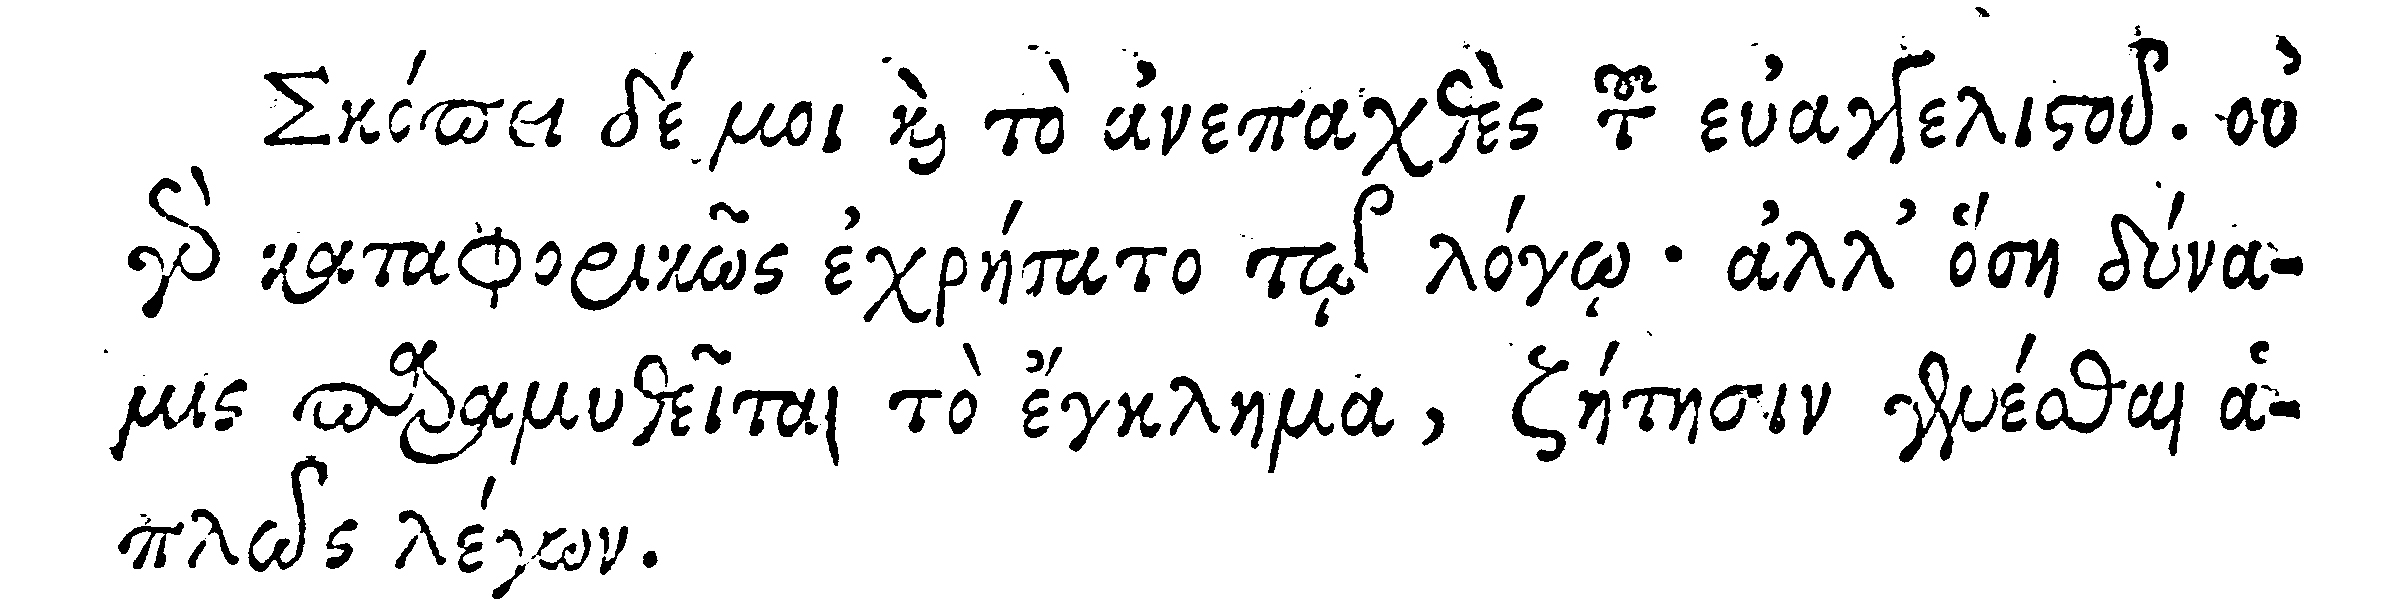 Σκόπει δέ μοι καὶ τὸ ἀνεπαχθὲς τοῦ εὐαγγελιστοῦ. οὐ
γὰρ καταφορικῶς ἐχρήσατο τῷ λόγῳ· ἀλλ' ὅση δύνα-
μις παραμυθεῖται τὸ ἔγκλημα, ζήτησιν γενέσθαι ἁ-
πλῶς λέγων.